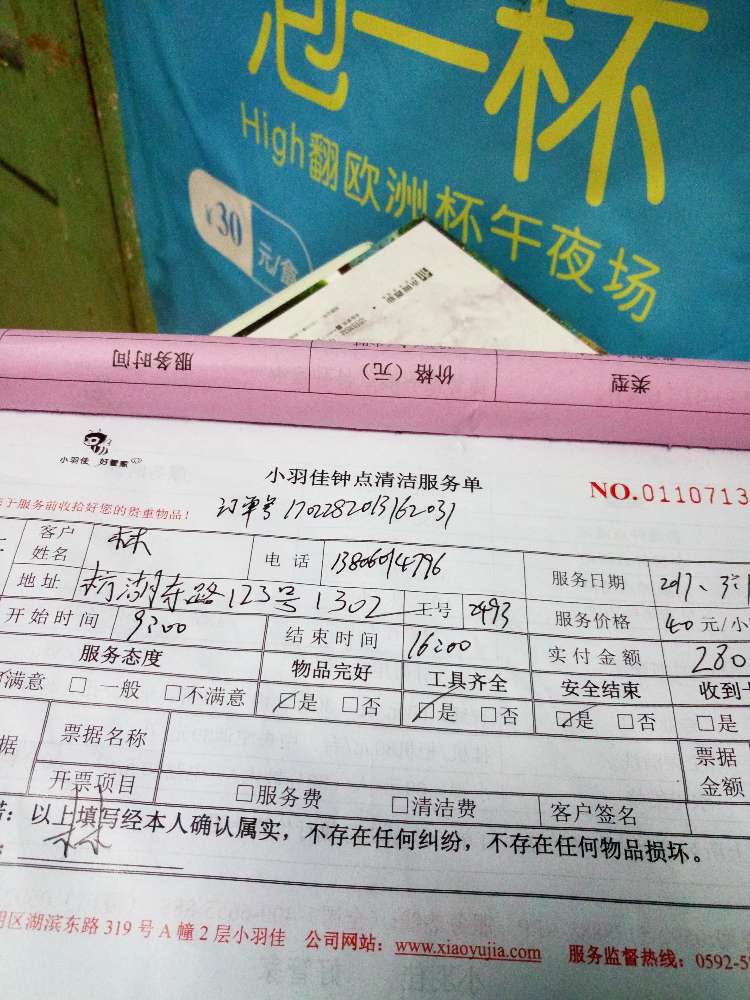 泡一杯
High翻欧洲杯午夜场
¥30元/盒
类型 价格(元) 服务时间
小羽佳 好管家
小羽佳钟点清洁服务单
NO.0110713
于服务前收拾好您的贵重物品!
订单号 1702282013162031
客户姓名 林 电话 服务日期 2017.
地址 路123号1302 工号 2493 服务价格 40元/小
开始时间 9:00 结束时间 16:00 实付金额 280
服务态度 物品完好 工具齐全 安全结束 收到
满意 □一般 □不满意 ☑是 □否 ☑是 □否 ☑是 □否 □是
据 票据名称 票据金额
开票项目 □服务费 □清洁费 客户签名
:以上填写经本人确认属实,不存在任何纠纷,不存在任何物品损坏。
林
区湖滨东路319号A幢2层小羽佳 公司网站:www.xiaoyujia.com 服务监督热线:0592-5